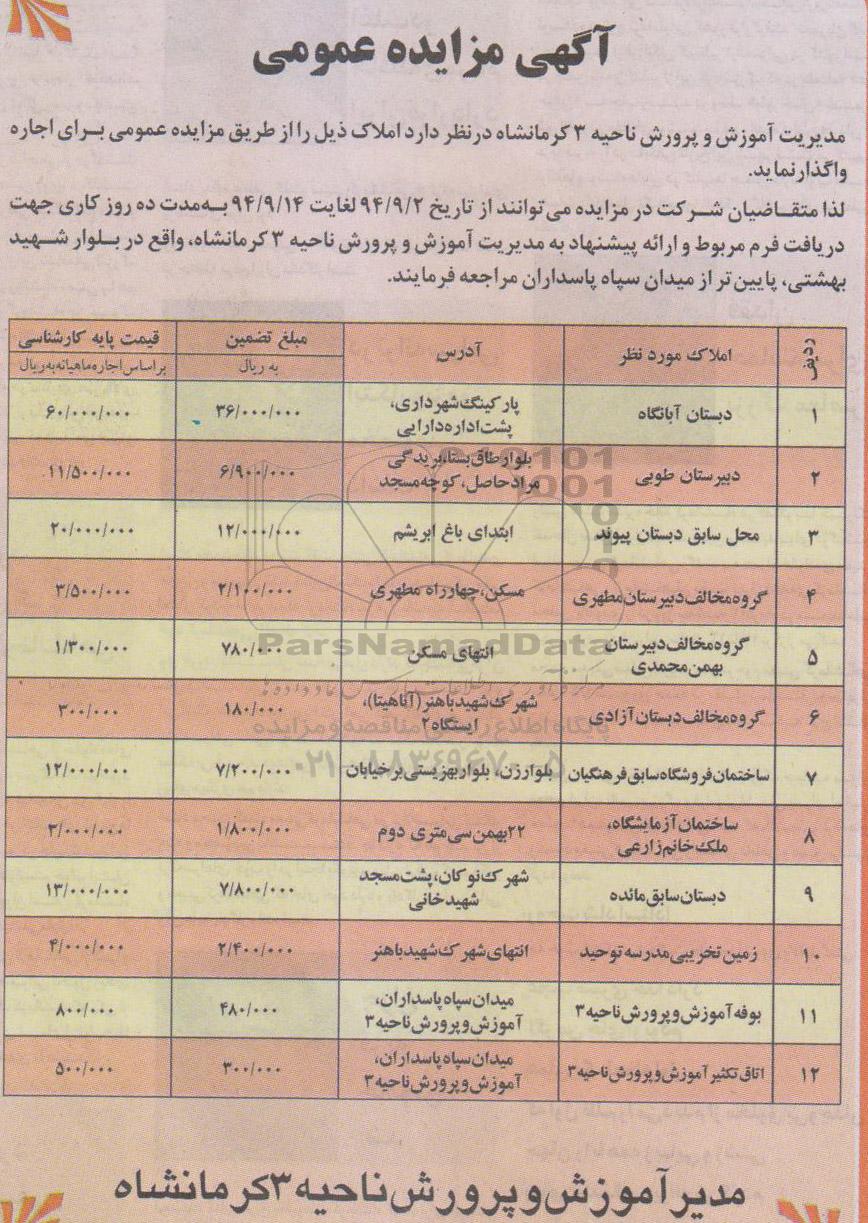 آگهی مزایده عمومی
مدیریت آموزش و پرورش ناحیه ۳ کرمانشاه درنظر دارد املاک ذیل را از طریق مزایده عمومی برای اجاره
واگذار نماید.
لذا متقاضیان شرکت در مزایده می توانند از تاریخ ۹۴/۹/۲ لغایت ۹۴/۹/۱۴ به‌مدت ده روز کاری جهت
دریافت فرم مربوط و ارائه پیشنهاد به مدیریت آموزش و پرورش ناحیه ۳ کرمانشاه، واقع در بلوار شهید
بهشتی، پایین تر از میدان سپاه پاسداران مراجعه فرمایند.
ردیف املاک مورد نظر آدرس مبلغ تضمین قیمت پایه کارشناسی
به ریال براساس اجاره ماهیانه به ریال
۱ دبستان آبانگاه پارکینگ شهرداری، ۳۶/۰۰۰/۰۰۰ ۶۰/۰۰۰/۰۰۰
پشت اداره دارایی
۲ دبیرستان طوبی بلوار طاق بستان، بریدگی ۶/۹۰۰/۰۰۰ ۱۱/۵۰۰/۰۰۰
مراد حاصل، کوچه مسجد
۳ محل سابق دبستان پیوند ابتدای باغ ابریشم ۱۲/۰۰۰/۰۰۰ ۲۰/۰۰۰/۰۰۰
۴ گروه مخالف دبیرستان مطهری مسکن، چهارراه مطهری ۲/۱۰۰/۰۰۰ ۳/۵۰۰/۰۰۰
۵ گروه مخالف دبیرستان انتهای مسکن ۷۸۰/۰۰۰ ۱/۳۰۰/۰۰۰
بهمن محمدی
۶ گروه مخالف دبستان آزادی شهرک شهید باهنر (آناهیتا)، ۱۸۰/۰۰۰ ۳۰۰/۰۰۰
ایستگاه ۲
۷ ساختمان فروشگاه سابق فرهنگیان بلوار زن، بلوار بهزیستی برخیابان ۷/۲۰۰/۰۰۰ ۱۲/۰۰۰/۰۰۰
۸ ساختمان آزمایشگاه، ۲۲بهمن سی متری دوم ۱/۸۰۰/۰۰۰ ۳/۰۰۰/۰۰۰
ملک خانم زارعی
۹ دبستان سابق مائده شهرک نوکان، پشت مسجد ۷/۸۰۰/۰۰۰ ۱۳/۰۰۰/۰۰۰
شهید خانی
۱۰ زمین تخریبی مدرسه توحید انتهای شهرک شهید باهنر ۲/۴۰۰/۰۰۰ ۴/۰۰۰/۰۰۰
۱۱ بوفه آموزش و پرورش ناحیه ۳ میدان سپاه پاسداران، ۴۸۰/۰۰۰ ۸۰۰/۰۰۰
آموزش و پرورش ناحیه ۳
۱۲ اتاق تکثیر آموزش و پرورش ناحیه ۳ میدان سپاه پاسداران، ۳۰۰/۰۰۰ ۵۰۰/۰۰۰
آموزش و پرورش ناحیه ۳
ParsNamadData
پایگاه اطلاع رسانی مناقصه و مزایده
۰۲۱-۸۸۳۴۹۶۷۰-۵
مدیر آموزش و پرورش ناحیه ۳ کرمانشاه